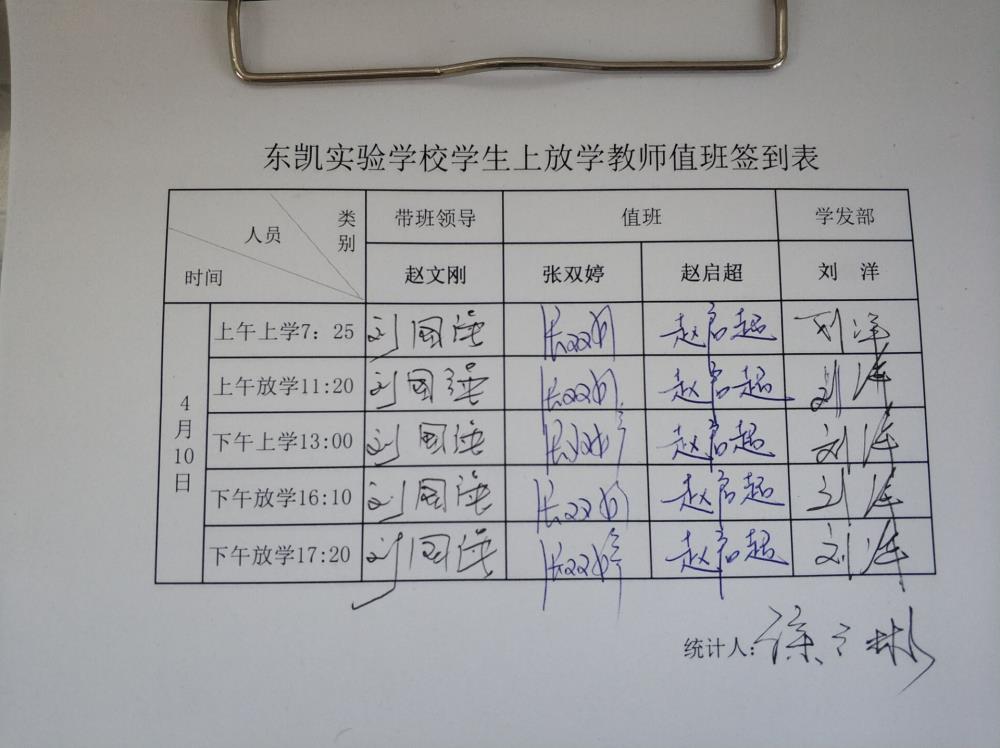 东凯实验学校学生上放学教师值班签到表
人员 类别 时间 带班领导 值班 学发部
赵文刚 张双婷 赵启超 刘 洋
4月10日
上午上学7：25 刘国强 张双婷 赵启超 刘洋
上午放学11:20 刘国强 张双婷 赵启超 刘洋
下午上学13:00 刘国强 张双婷 赵启超 刘洋
下午放学16:10 刘国强 张双婷 赵启超 刘洋
下午放学17:20 刘国强 张双婷 赵启超 刘洋
统计人：